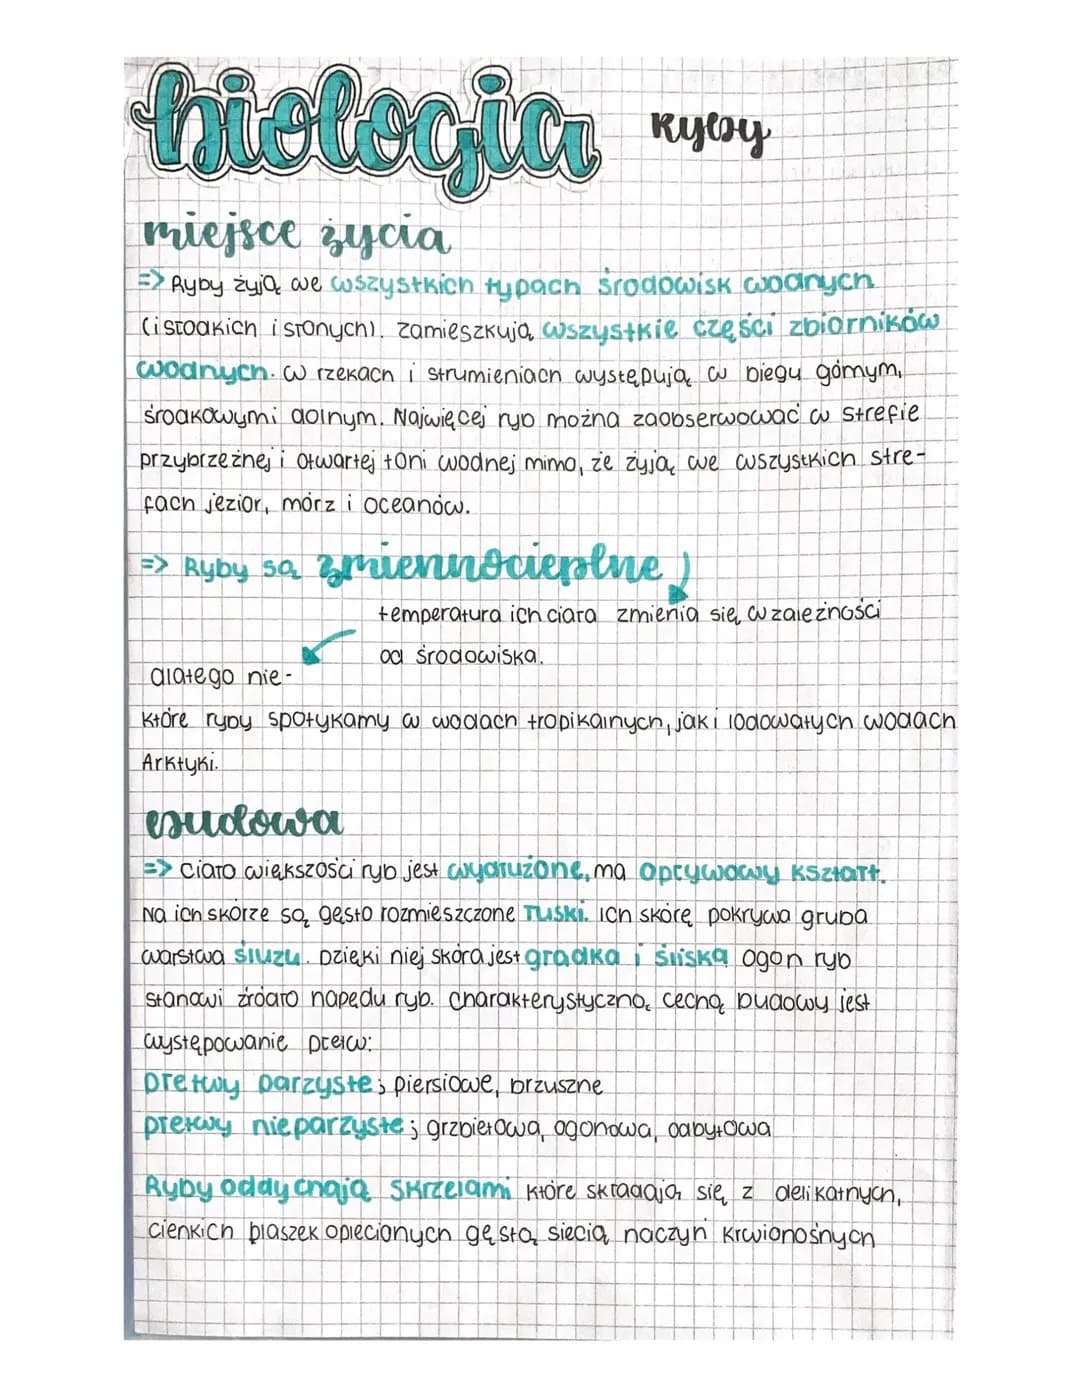 biologia Ryby
miejsce życia
=> Ryby żyją we wszystkich typach środowisk wodnych
(i słodkich i słonych). Zamieszkują wszystkie części zbiorników
wodnych. W rzekach i strumieniach występują w biegu górnym,
środkowym i dolnym. Najwięcej ryb można zaobserwować w strefie
przybrzeżnej i otwartej toni wodnej mimo, że żyją we wszystkich stre-
fach jezior, mórz i oceanów.
=> Ryby są zmiennocieplne
temperatura ich ciała zmienia się w zależności
od środowiska.
dlatego nie-
które ryby spotykamy w wodach tropikalnych, jak i lodowatych wodach
Arktyki.
budowa
=> Ciało większości ryb jest wydłużone, ma opływowy kształt.
Na ich skórze są gęsto rozmieszczone łuski. Ich skórę pokrywa gruba
warstwa śluzu. Dzięki niej skóra jest gładka i śliska ogon ryb
stanowi źródło napędu ryb. Charakterystyczną cechą budowy jest
występowanie płetw:
płetwy parzyste; piersiowe, brzuszne
płetwy nieparzyste; grzbietowa, ogonowa, odbytowa
Ryby oddychają skrzelami które składają się z delikatnych,
cienkich blaszek oplecionych gęstą siecią naczyń krwionośnych